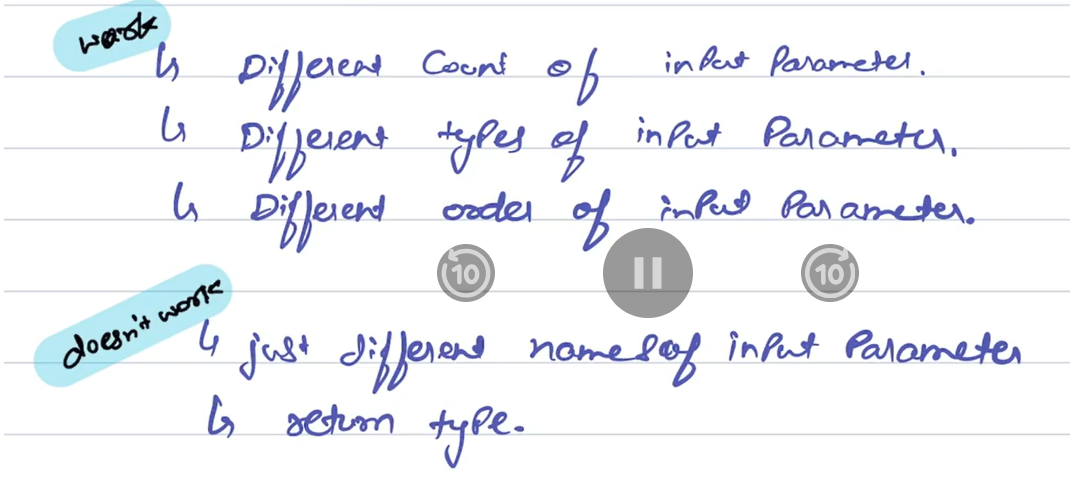 work
↳ Different Count of input Parameter.
↳ Different types of input Parameter.
↳ Different order of input Parameter.
10 10
doesn't work
↳ just different names of input Parameter
↳ return type.